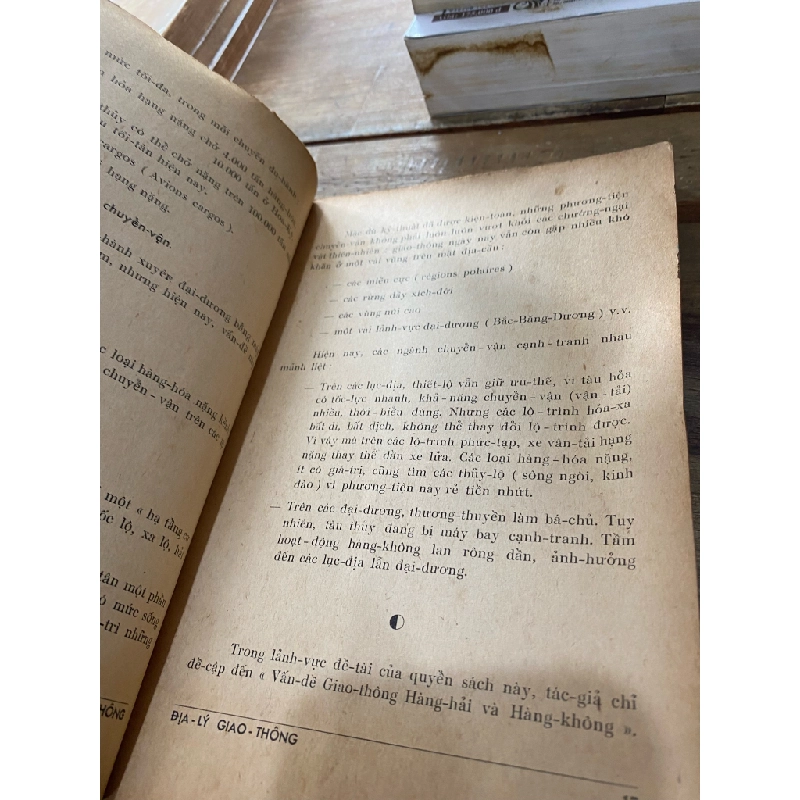 mức tối-đa, trong mỗi chuyến du-hành
hóa hạng nặng chở 4.000 tấn hàng-hóa
thủy có thể chở 10.000 tấn
tối-tân hiện nay. nặng trên 100.000 tấn
cargos ( Avions cargos ).
hạng nặng.
chuyển-vận.
hành xuyên đại-dương bằng
nhưng hiện nay, vấn-đề
loại hàng-hóa nặng
chuyển-vận trên các
một « hạ tầng
lộ, xa lộ,
tân một phần
mức sống
trì những
THÔNG
Mặc dù kỹ-thuật đã được kiện-toàn, những phương-tiện
chuyển-vận không phải luôn luôn vượt khỏi các chướng-ngại
vật thiên-nhiên : giao-thông ngày nay vẫn còn gặp nhiều khó
khăn ở một vài vùng trên mặt địa-cầu :
— các miền cực ( régions polaires )
— các rừng dày xích-đới
— các vùng núi cao
— một vài lãnh-vực đại-dương ( Bắc-Băng-Dương ) v.v.
Hiện nay, các ngành chuyển-vận cạnh-tranh nhau
mãnh liệt
— Trên các lục-địa, thiết-lộ vẫn giữ ưu-thế, vì tàu hỏa
có tốc-lực nhanh, khả-năng chuyển-vận (vận-tải)
nhiên, thời-biểu đúng. Nhưng các lộ-trình hỏa-xa
bất di, bất dịch, không thể thay đổi lộ-trình được.
Vì vậy mà trên các lộ-trình phức-tạp, xe vận-tải hạng
nặng thay thế dần xe lửa. Các loại hàng-hóa nặng,
ít có giá-trị, cũng tìm các thủy-lộ ( sông ngòi, kinh
đào ) vì phương-tiện này rẻ tiền nhứt.
— Trên các đại-dương, thương-thuyền làm bá-chủ. Tuy
nhiên, tàu thủy đang bị máy bay cạnh-tranh. Tầm
hoạt-động hàng-không lan rộng dần, ảnh-hưởng
đến các lục-địa lẫn đại-dương.
Trong lãnh-vực đề-tài của quyển sách này, tác-giả chỉ
đề-cập đến « Vấn-đề Giao-thông Hàng-hải và Hàng-không ».
ĐỊA-LÝ GIAO-THÔNG